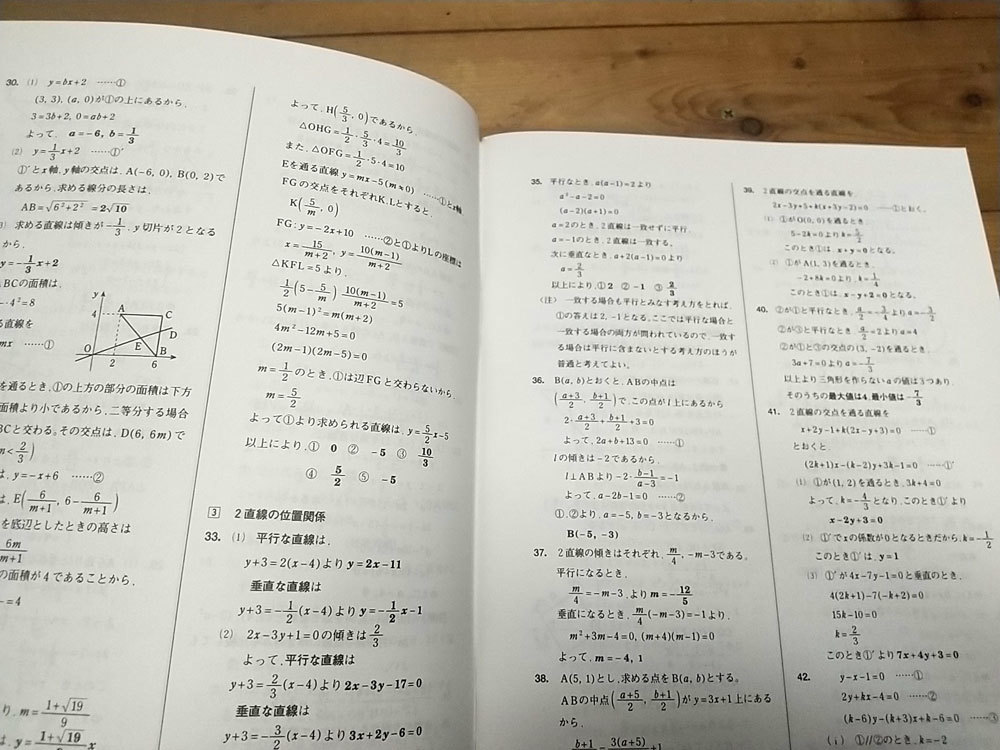 30. (1) y=bx+2 ……①
(3, 3), (a, 0)が①の上にあるから,
3=3b+2, 0=ab+2
よって, a=-6, b=1/3
(2) y=1/3x+2 ……①′
①′とx軸, y軸の交点は, A(-6, 0), B(0, 2)で
あるから, 求める線分の長さは,
AB=√6²+2² =2√10
求める直線は傾きが-1/3, y切片が2となる
から,
y=-1/3x+2
BCの面積は,
·4²=8
直線を
mx ……①
y
4
A
C
D
E
O
2
6
B
x
を通るとき, ①の上方の部分の面積は下方
面積より小であるから, 二等分する場合
BCと交わる。その交点は, D(6, 6m)で
m<2/3)
は, y=-x+6 ……②
は, E(6/m+1, 6-6/m+1)
を底辺としたときの高さは
6m/m+1
の面積が4であることから,
=4
り, m=1+√19/9
y=1+√19/9 x
よって, H(5/3, 0)であるから,
△OHG=1/2·5/3·4=10/3
また, △OFG=1/2·5·4=10
Eを通る直線 y=mx-5(m≠0) ……①とx軸,
FGの交点をそれぞれK, Lとすると,
K(5/m, 0)
FG: y=-2x+10 ……②と①よりLの座標は
x=15/m+2, y=10(m-1)/m+2
△KFL=5より,
1/2(5-5/m)·10(m-1)/m+2=5
5(m-1)²=m(m+2)
4m²-12m+5=0
(2m-1)(2m-5)=0
m=1/2のとき, ①は辺FGと交わらないから,
m=5/2
よって①より求められる直線は, y=5/2x-5
以上により, ① 0 ② -5 ③ 10/3
④ 5/2 ⑤ -5
3 2直線の位置関係
33. (1) 平行な直線は,
y+3=2(x-4)より y=2x-11
垂直な直線は
y+3=-1/2(x-4)より y=-1/2x-1
(2) 2x-3y+1=0の傾きは2/3
よって, 平行な直線は
y+3=2/3(x-4)より 2x-3y-17=0
垂直な直線は
y+3=-3/2(x-4)より 3x+2y-6=0
35. 平行なとき, a(a-1)=2より
a²-a-2=0
(a-2)(a+1)=0
a=2のとき, 2直線は一致せずに平行,
a=-1のとき, 2直線は一致する。
次に垂直なとき, a+2(a-1)=0より
a=2/3
以上により, ① 2 ② -1 ③ 2/3
(注) 一致する場合も平行とみなす考え方をとれば,
①の答えは2, -1となる。ここでは平行な場合と
一致する場合の両方が問われているので, 一致す
る場合は平行に含まないとする考え方のほうが
普通と考えてよい。
36. B(a, b)とおくと, ABの中点は
(a+3/2, b+1/2)で, この点がl上にあるから
2·a+3/2+b+1/2+3=0
よって, 2a+b+13=0 ……①
lの傾きは-2であるから,
l⊥ABより -2·b-1/a-3=-1
よって, a-2b-1=0 ……②
①, ②より, a=-5, b=-3となるから,
B(-5, -3)
37. 2直線の傾きはそれぞれ, m/4, -m-3である。
平行になるとき,
m/4=-m-3, より m=-12/5
垂直になるとき, m/4(-m-3)=-1より,
m²+3m-4=0, (m+4)(m-1)=0
よって, m=-4, 1
38. A(5, 1)とし, 求める点をB(a, b)とする。
ABの中点(a+5/2, b+1/2)が y=3x+1上にある
から,
b+1 3(a+5)
39. 2直線の交点を通る直線を,
2x-3y+5+k(x+3y-2)=0 ……①とおく。
(1) ①がO(0, 0)を通るとき,
5-2k=0より k=5/2
このとき①は, x+y=0となる。
(2) ①がA(1, 3)を通るとき,
-2+8k=0より, k=1/4
このとき①は, x-y+2=0となる。
40. ②が①と平行なとき, a/2=-3/4より a=-3/2
②が③と平行なとき a/2=2より a=4
②が①と③の交点の(3, -2)を通るとき,
3a+7=0より a=-7/3
以上より三角形を作らないaの値は3つあり,
そのうちの最大値は4, 最小値は-7/3
41. 2直線の交点を通る直線を
x+2y-1+k(2x-y+3)=0 ……①
とおくと,
(2k+1)x-(k-2)y+3k-1=0 ……①′
(1) ①が(1, 2)を通るとき, 3k+4=0
よって, k=-4/3となり, このとき①′より
x-2y+3=0
(2) ①′でxの係数が0となるときだから, k=-1/2
このとき①′は, y=1
(3) ①′が4x-7y-1=0と垂直のとき,
4(2k+1)-7(-k+2)=0
15k-10=0
k=2/3
このとき①′より 7x+4y+3=0
42. y-x-1=0 ……①
2y+kx-4=0 ……②
(k-6)y-(k+3)x+k-6=0 ……③
(i) ①//②のとき, k=-2